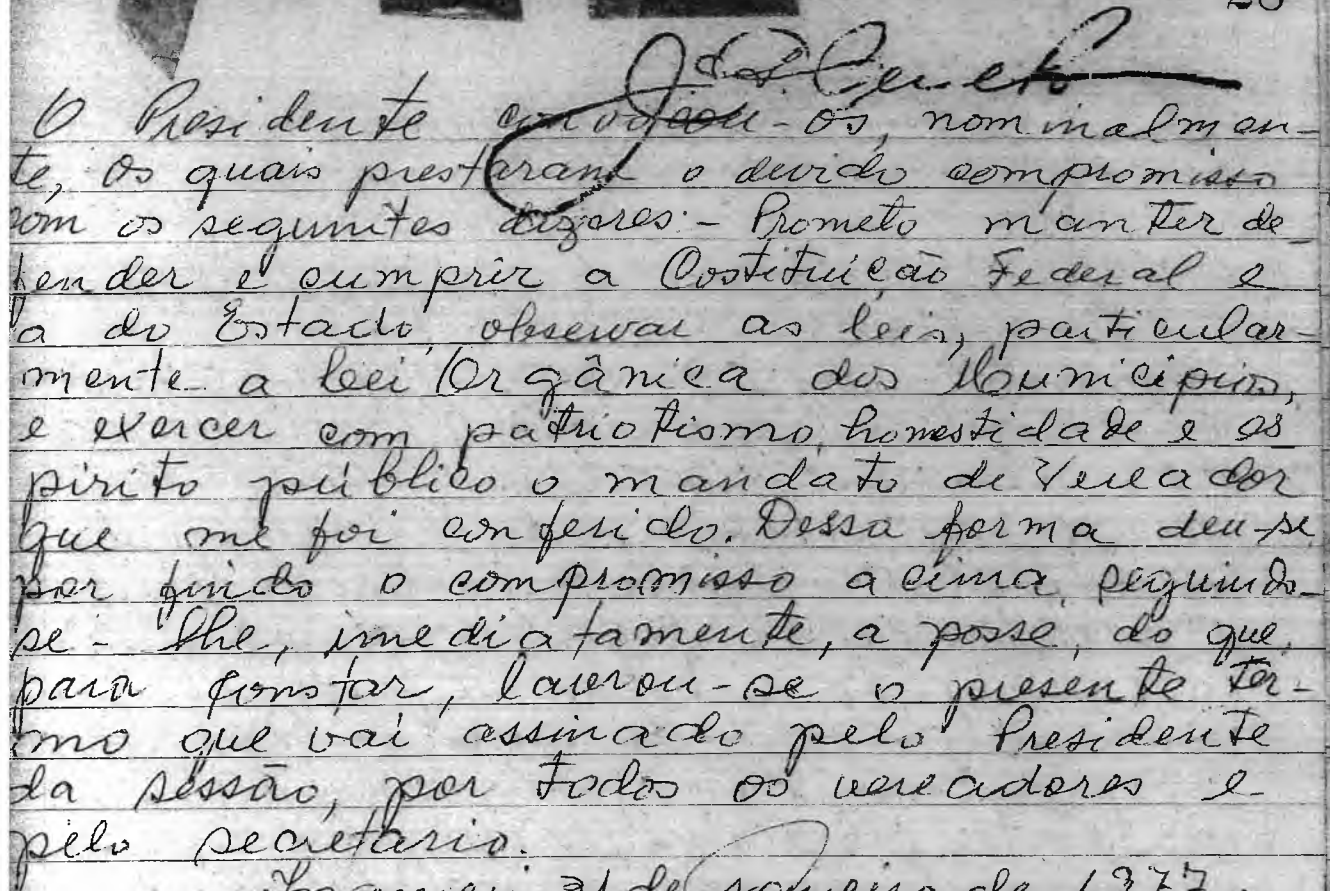 O Presidente convocou-os, nominalmen-
te, os quais prestaram o devido compromisso
com os seguintes dizeres: - Prometo manter de-
fender e cumprir a Costituição Federal e
a do Estado, observar as leis, particular-
mente a Lei Orgânica dos Municípios,
e exercer com patriotismo, honestidade e es
pirito público o mandato de Vereador
que me foi conferido. Dessa forma deu-se
por findo o compromisso acima, seguindo-
se-lhe, imediatamente, a posse, do que,
para constar, lavrou-se o presente ter-
mo que vai assinado pelo Presidente
da sessão, por todos os vereadores e
pelo secretário.
31 de Janeiro de 1977